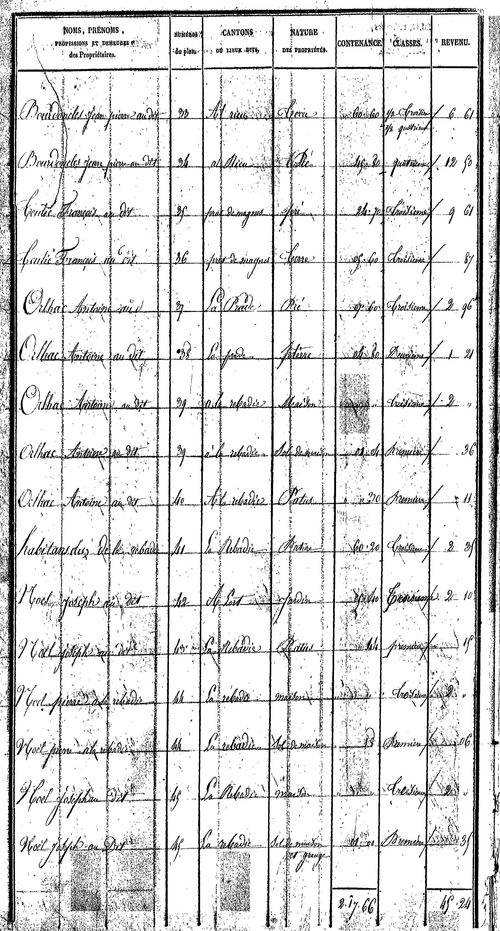 NOMS, PRÉNOMS, PROFESSIONS ET DEMEURES des Propriétaires. NUMÉROS du plan. CANTONS OU LIEUX DITS. NATURE DES PROPRIÉTÉS. CONTENANCE. CLASSES. REVENU.
Bourdoncles Jean pierre au dit 33 Al rieu Terre 60.60 6 61
Bourdoncles Jean pierre au dit 34 al Rieu Pré 45.80 quatrieme 12 53
Coutié François au dit 35 prat de magnes pré 24.70 Troisieme 9 61
Coutié François au dit 36 prat de magnes Terre 05.60 Troisieme 87
Orlhac Antoine au d 37 La Prade Pré 07.60 Troisieme 2 96
Orlhac Antoine au dit 38 La prade 04.80 Deuxieme 1 21
Orlhac Antoine au dit 39 a la rebadie Maison Troisieme 2 "
Orlhac Antoine au dit 39 à la rebadie Sol de maison Premiere 36
Orlhac Antoine au dit 40 A la rebadie Patus 20 Premiere 11
habitans des de la rebadie 41 La Rebadie 60.20 Troisieme 2 35
Noel joseph au dit 42 A Lort Jardin Troisieme 2 10
Noel joseph au dit 43 La Rebadie Patus 44 premiere 15
Noel pierre à la rebadie 44 La rebadie maison Troisieme 2 "
Noël pierre à la rebadie 44 La rebadie Sol de maison 13 Premiere 06
Noel joseph au dit 45 La Rebadie maison Troisieme 2 "
Noël joseph au Dit 45 La rebadie Sol de maison et grange 01.01 Premiere 35
2.17.66 45.24